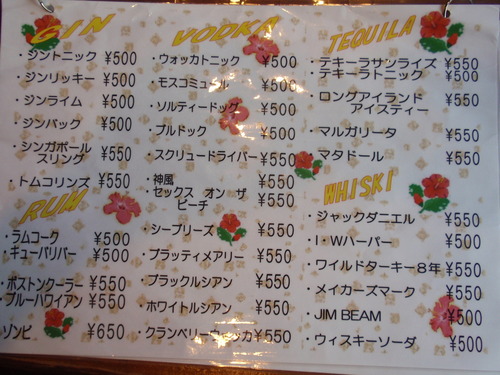 GIN
・ジントニック ¥500
・ジンリッキー ¥500
・ジンライム ¥500
・ジンバック ¥500
・シンガポール
スリング ¥550
・トムコリンズ ¥550
RUM
・ラムコーク ¥500
・キューバリバー ¥500
・ボストンクーラー ¥550
・ブルーハワイアン ¥550
ゾンビ ¥650
VODKA
・ウォッカトニック ¥500
・モスコミュール ¥500
・ソルティードッグ ¥500
・ブルドック ¥500
・スクリュードライバー ¥550
・神風 ¥550
・セックス オン ザ
ビーチ ¥550
・シーブリーズ ¥550
・ブラッティメアリー ¥550
・ブラックルシアン ¥550
・ホワイトルシアン ¥550
・クランベリーウォッカ ¥550
TEQUILA
・テキーラサンライズ ¥550
・テキーラトニック ¥500
・ロングアイランド ¥550
アイスティー
・マルガリータ ¥550
・マタドール ¥550
WHISKI
・ジャックダニエル ¥550
・I・Wハーパー ¥500
・ワイルドターキー8年 ¥550
・メイカーズマーク ¥550
・JIM BEAM ¥500
・ウィスキーソーダ ¥500